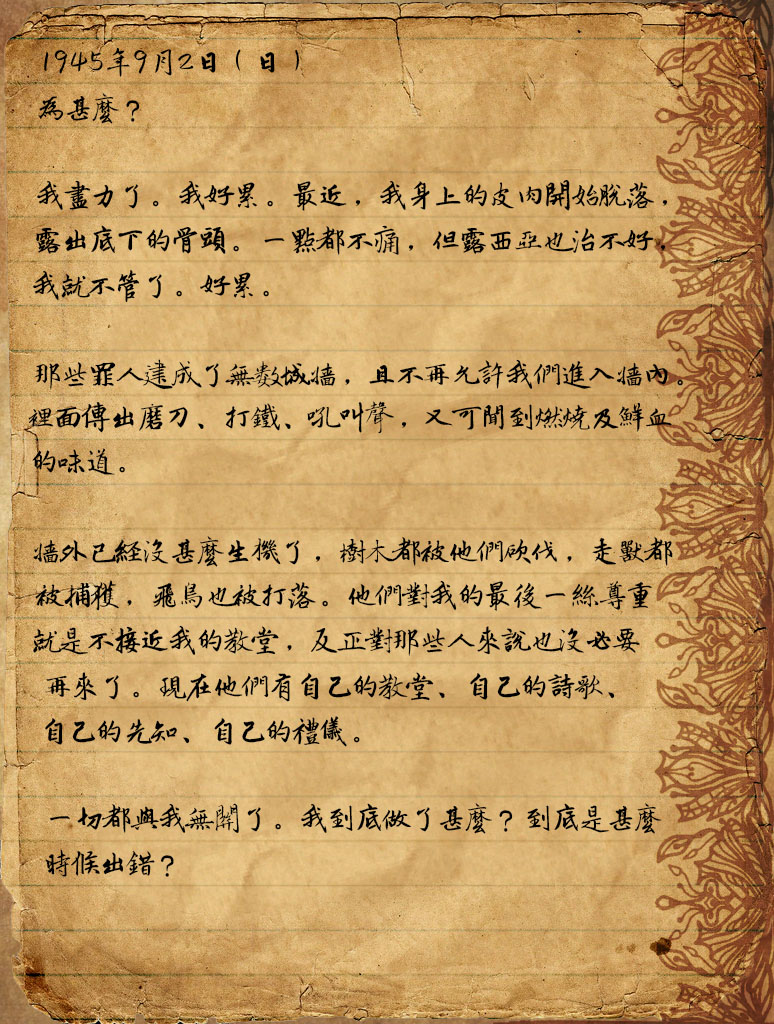 1945年9月2日（日）
為甚麼？
我盡力了。我好累。最近，我身上的皮肉開始脫落，
露出底下的骨頭。一點都不痛，但露西亞也治不好，
我就不管了。好累。
那些罪人建成了無數城牆，且不再允許我們進入牆內。
裡面傳出磨刀、打鐵、吼叫聲，又可聞到燃燒及鮮血
的味道。
牆外已經沒甚麼生機了，樹木都被他們砍伐，走獸都
被捕獲，飛鳥也被打落。他們對我的最後一絲尊重
就是不接近我的教堂，反正對那些人來說也沒必要
再來了。現在他們有自己的教堂、自己的詩歌、
自己的先知、自己的禮儀。
一切都與我無關了。我到底做了甚麼？到底是甚麼
時候出錯？